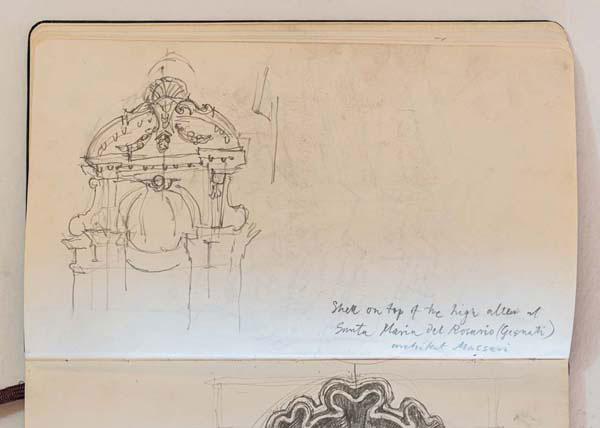 Shell on top of the high alter of
Santa Maria del Rosario (Gesuati)
architect Massari